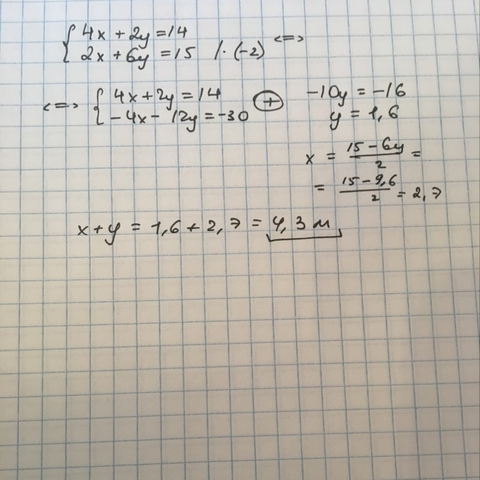 { 4x + 2y = 14
2x + 6y = 15 /·(-2) <=>
<=> { 4x + 2y = 14
- 4x - 12y = -30 +
-10y = -16
y = 1,6
x = (15 - 6y)/2 =
= (15 - 9,6)/2 = 2,7
x + y = 1,6 + 2,7 = 4,3 м